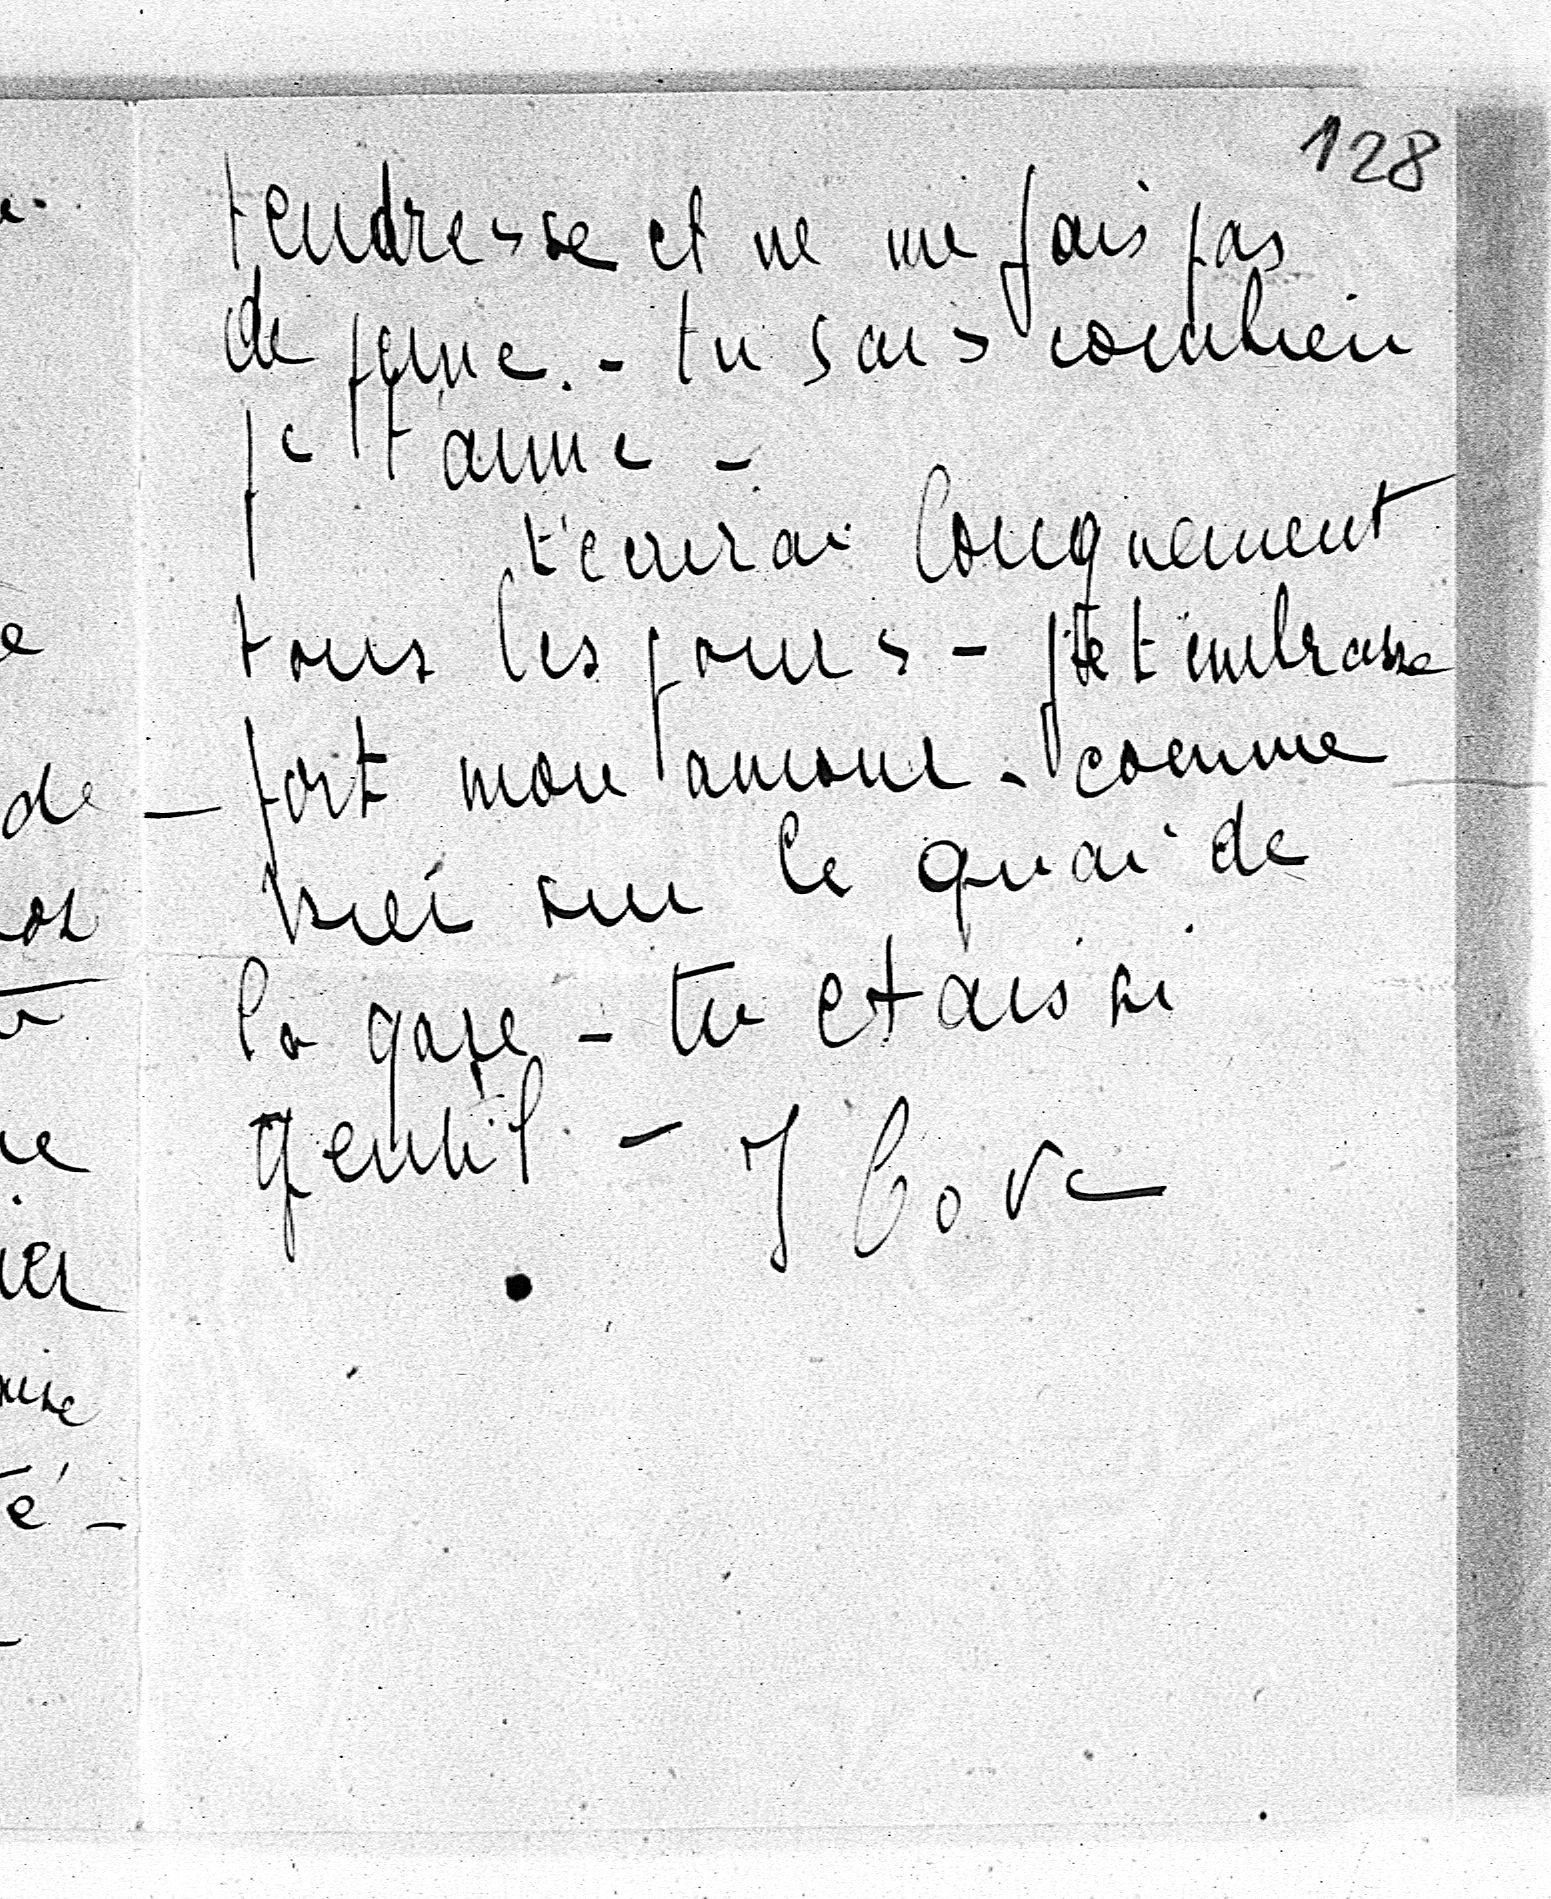 128
tendresse et ne me fais pas
de peine. - tu sais combien
je t'aime -
t'écrirai longuement
tous les jours - je t'embrasse
fort mon amour. comme
sur le quai de
la gare - tu etais si
gentil - J